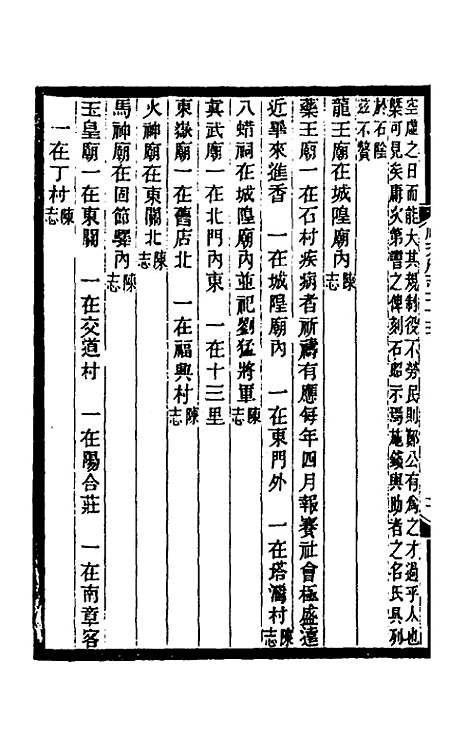 空虛之日而能大其規制役不勞民則鄭公有爲之才過乎人也
槩可見矣庸次第書之俾刻石昭示焉施錢與助者之名氏具列
於石陰
茲不贅
龍王廟在城隍廟內陳志
藥王廟一在石村疾病者祈禱有應每年四月報賽社會極盛遠
近畢來進香　一在城隍廟內　一在東門外　一在塔灣村陳志
八蜡祠在城隍廟內並祀劉猛將軍陳志
真武廟一在北門內東　一在十三里
東嶽廟一在舊店北　一在福興村陳志
火神廟在東關北陳志
馬神廟在固節驛內陳志
玉皇廟一在東關　一在交道村　一在陽合莊　一在南章客
一在丁村陳志